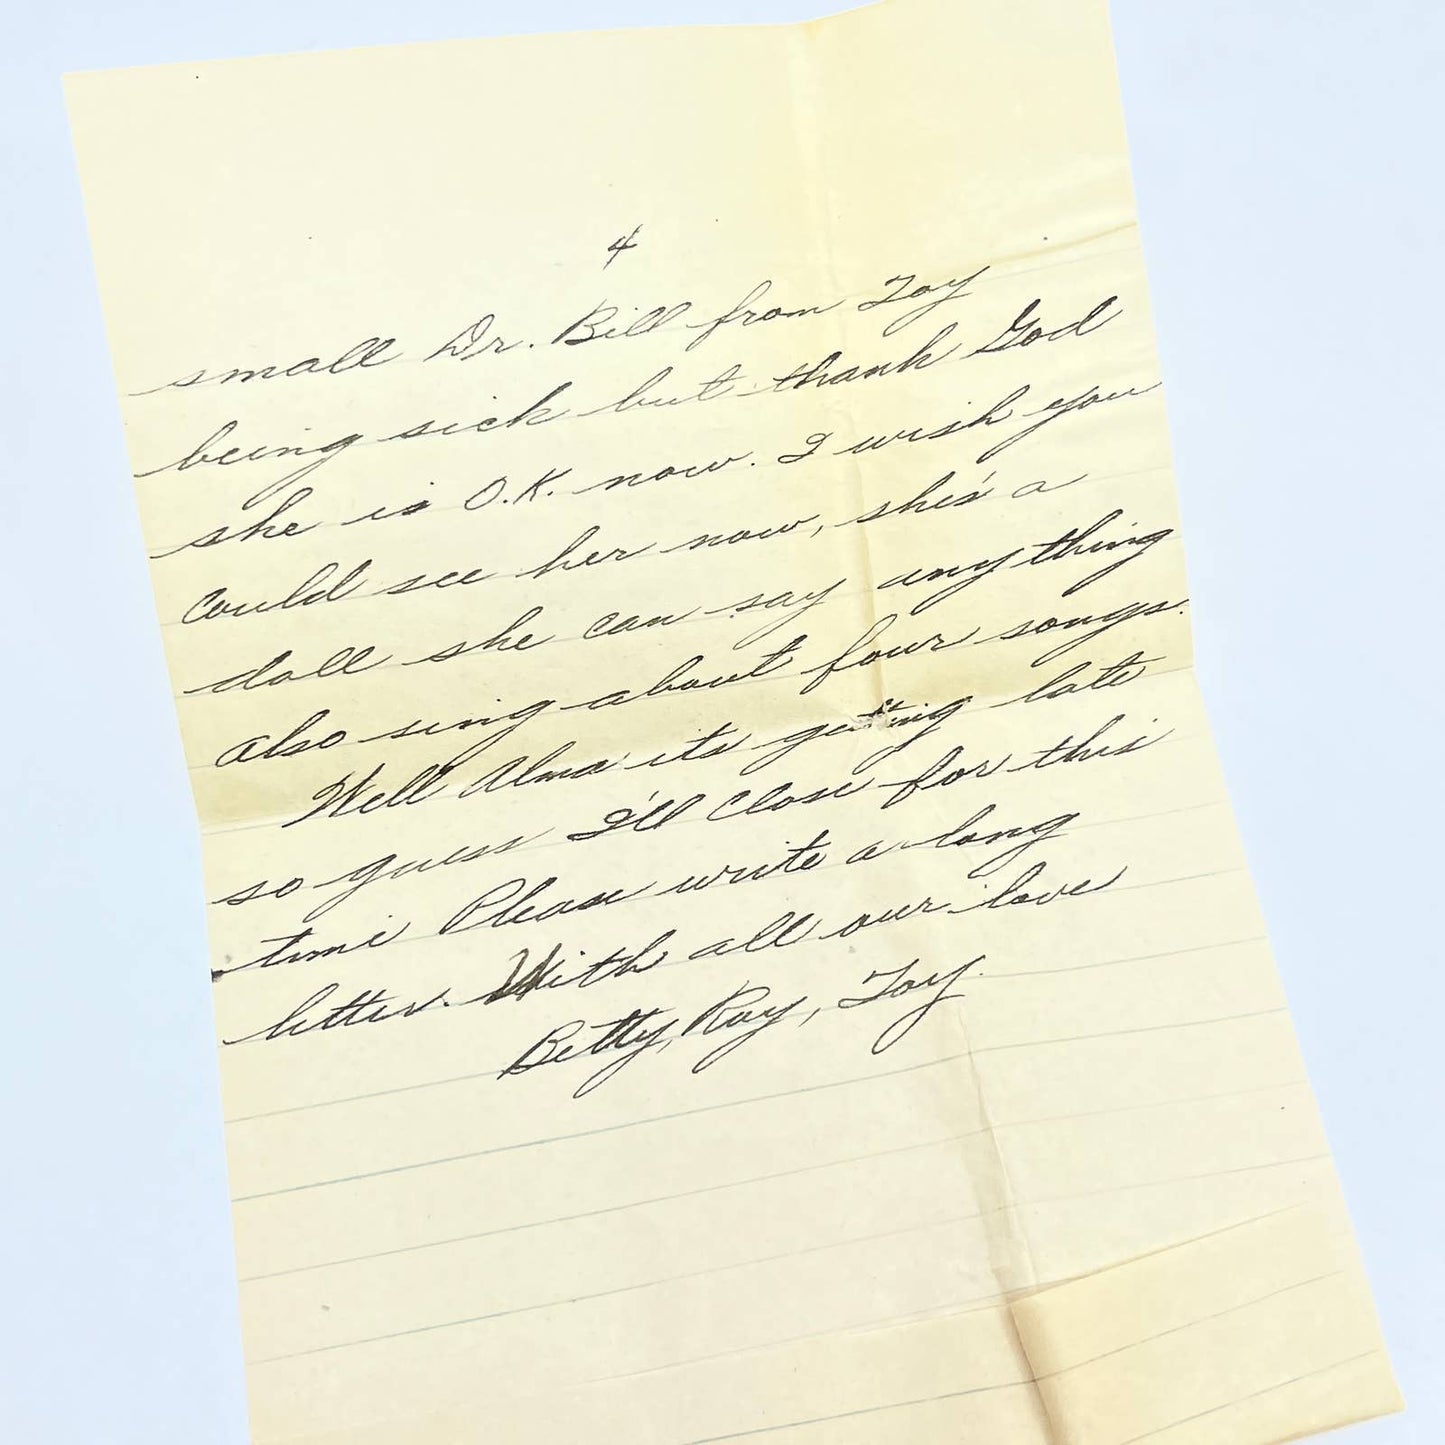 4
small Dr. Bill from Toy
being sick but thank God
she is O.K. now. I wish you
could see her now, she's a
doll she can say any thing
also sing about four songs.
Well Alma its getting late
so guess I'll close for this
time Please write a long
letter. With all our love
Betty, Ray, Toy.